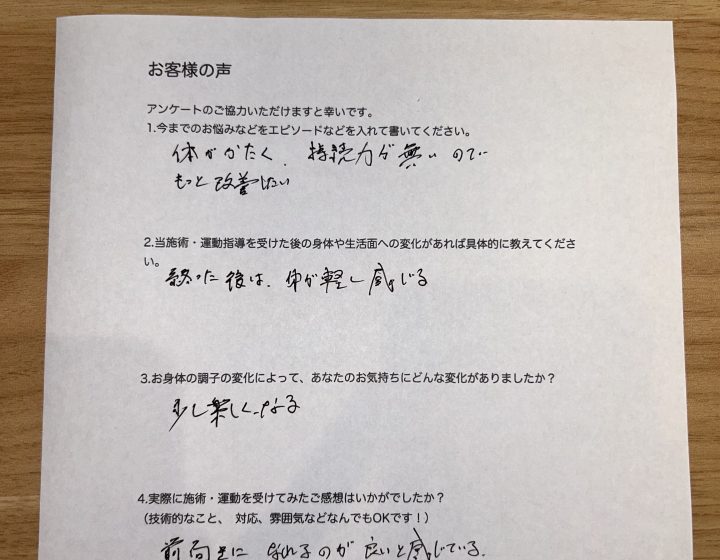 お客様の声
アンケートのご協力いただけますと幸いです。
1.今までのお悩みなどをエピソードなどを入れて書いてください。
体がかたく、持続力が無いので
もっと改善したい
2.当施術・運動指導を受けた後の身体や生活面への変化があれば具体的に教えてくださ
い。
終った後は、体が軽く感じる
3.お身体の調子の変化によって、あなたのお気持ちにどんな変化がありましたか？
少し楽しくなる
4.実際に施術・運動を受けてみたご感想はいかがでしたか？
（技術的なこと、 対応、雰囲気などなんでもOKです！）
前向きに なれるのが 良いと感じている。